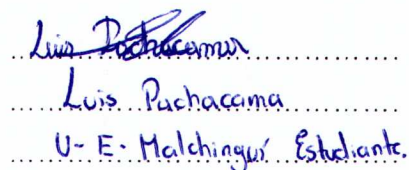 Luis Pachacama
Luis Pachacama
U-E-Malchinguí Estudiante.